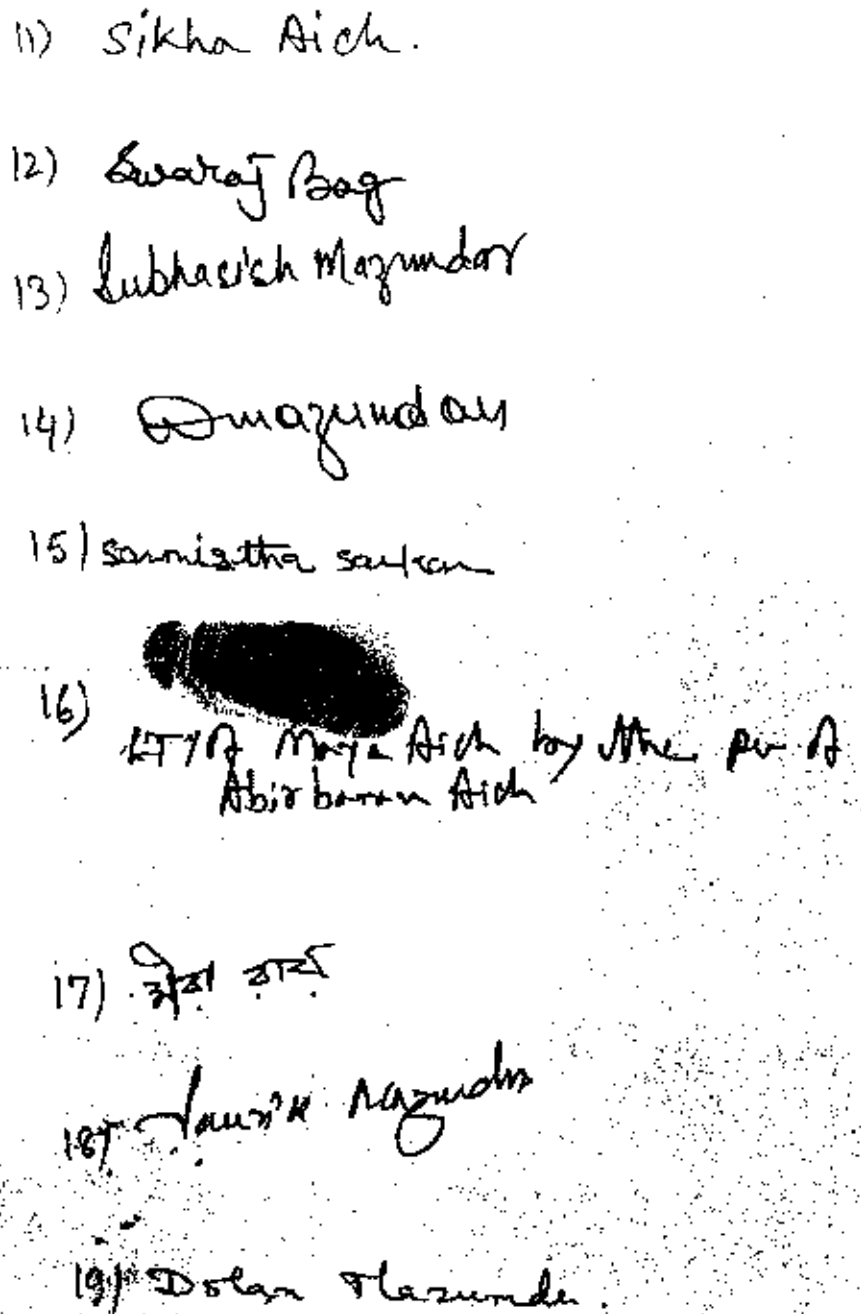 11) Sikha Aich.
12) Swaraj Bag
13) Subhasish Mazumdar
14) Dmazumdar
15) Sarmistha Sarkar
16)
LTI of Maya Aich by the pen of
Abirbaran Aich
17) রায়
18) Mazumdar
19) Dolan Mazumder.